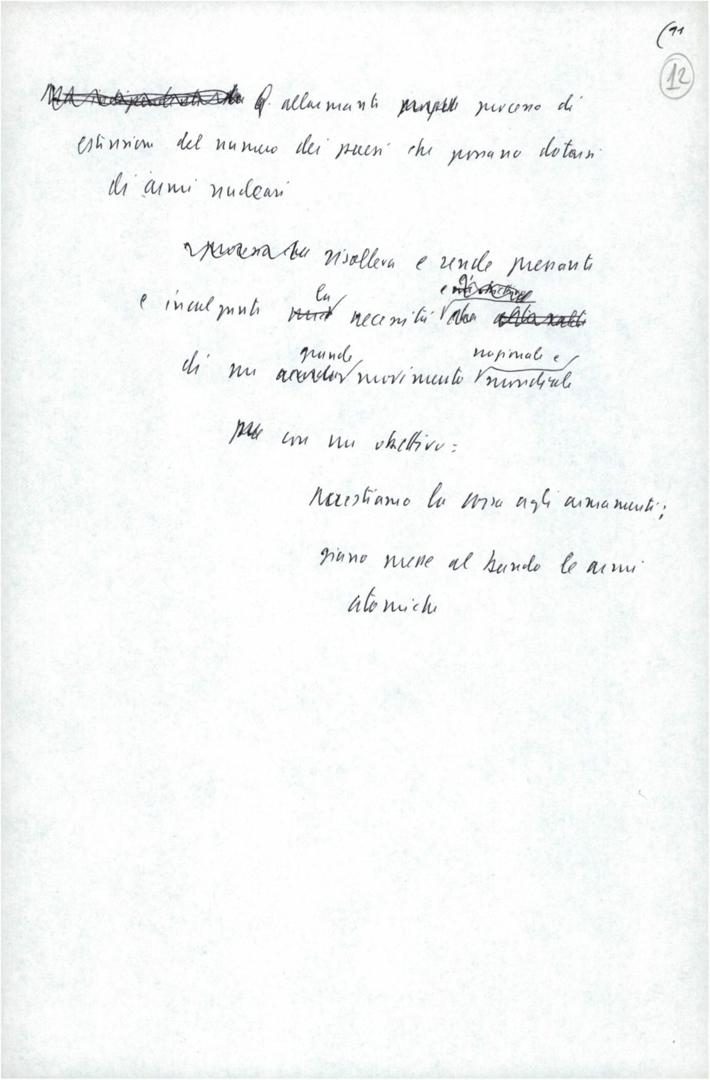 (11
12
Q. allarmante processo di
estensione del numero dei paesi che possano dotarsi
di armi nucleari
risolleva e rende pressante
e incalzante la necessità
di un grande movimento nazionale e mondiale
con un obettivo:
arrestiamo la corsa agli armamenti;
siano messe al bando le armi
atomiche